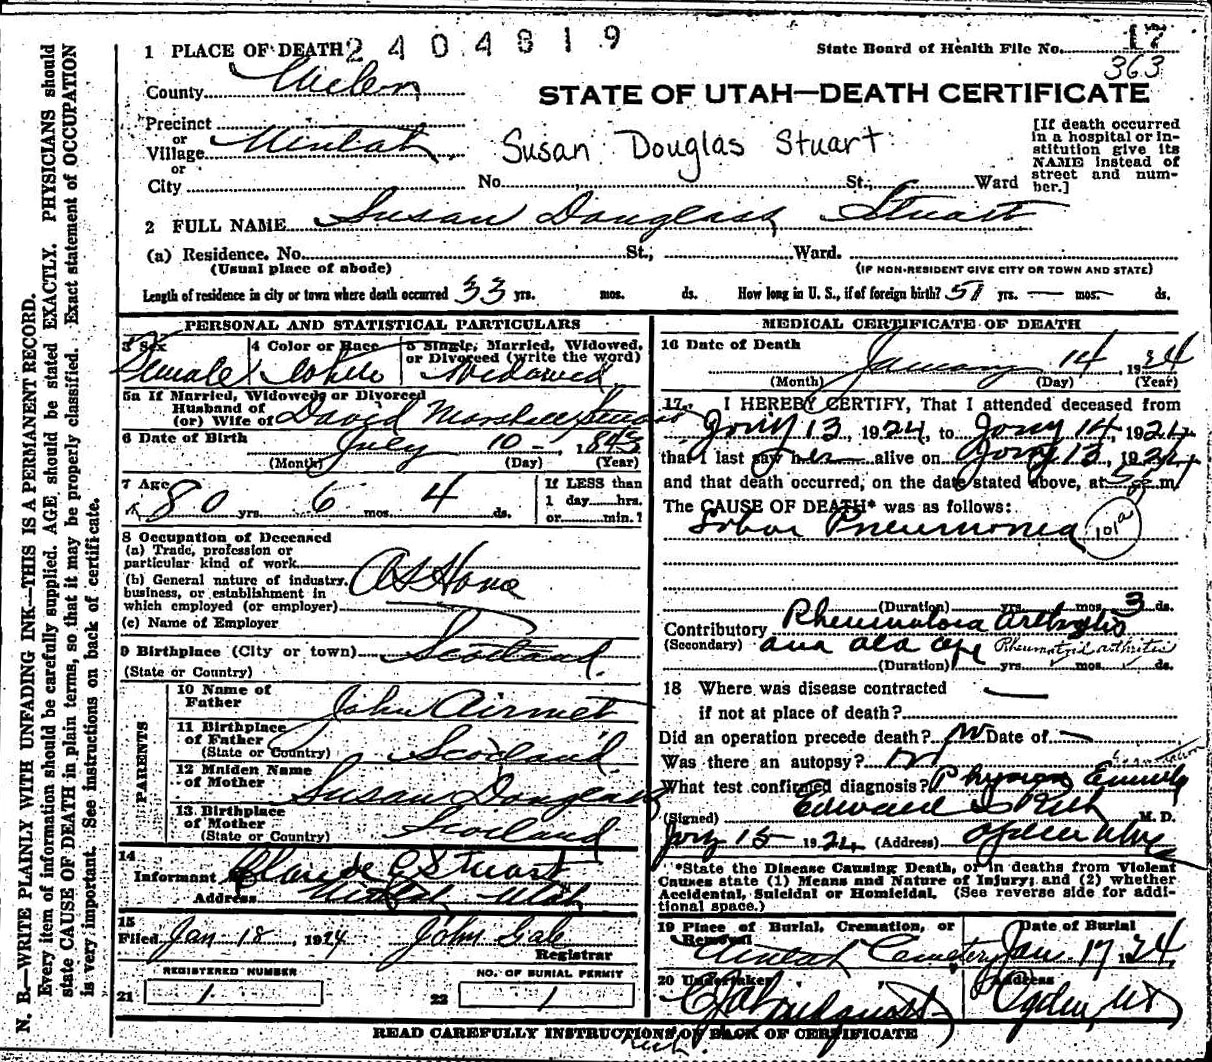 1 PLACE OF DEATH 2 4 0 4 8 1 9
State Board of Health File No. 17
363
County
STATE OF UTAH—DEATH CERTIFICATE
Precinct
or
Village Uintah
or
City
Susan Douglas Stuart
No. St., Ward
[If death occurred in a hospital or institution give its NAME instead of street and number.]
2 FULL NAME Susan Douglass Stuart
(a) Residence. No. St., Ward.
(Usual place of abode) (IF NON-RESIDENT GIVE CITY OR TOWN AND STATE)
Length of residence in city or town where death occurred 53 yrs. mos. ds. How long in U. S., if of foreign birth? 51 yrs. — mos. — ds.
PERSONAL AND STATISTICAL PARTICULARS
3 Sex Female
4 Color or Race White
5 Single, Married, Widowed, or Divorced (write the word) Widowed
5a If Married, Widowed, or Divorced
Husband of
(or) Wife of David Marshall Stuart
6 Date of Birth July 10 - 1843
(Month) (Day) (Year)
7 Age 80 yrs. 6 mos. 4 ds.
If LESS than
1 day hrs.
or min.?
8 Occupation of Deceased
(a) Trade, profession or
particular kind of work
(b) General nature of industry,
business, or establishment in
which employed (or employer)
At Home
(c) Name of Employer
9 Birthplace (City or town) Scotland.
(State or Country)
PARENTS
10 Name of
Father John Airmet
11 Birthplace
of Father Scotland
(State or Country)
12 Maiden Name
of Mother Susan Douglass
13. Birthplace
of Mother Scotland
(State or Country)
14
Informant Stuart
Address Uintah, Utah
15
Filed Jan 18, 1924 John Gale
Registrar
REGISTERED NUMBER NO. OF BURIAL PERMIT
21 1 22 1
MEDICAL CERTIFICATE OF DEATH
16 Date of Death January 14, 1924
(Month) (Day) (Year)
17. I HEREBY CERTIFY, That I attended deceased from
Jany 13, 1924, to Jany 14, 1924
that I last saw her alive on Jany 13, 1924,
and that death occurred, on the date stated above, at m.
The CAUSE OF DEATH* was as follows:
Lobar Pneumonia 101a
(Duration) yrs. mos. 3 ds.
Contributory Rheumatoid Arthritis
(Secondary) and old age Rheumatoid arthritis
(Duration) yrs. mos. ds.
18 Where was disease contracted —
if not at place of death?
Did an operation precede death? No Date of —
Was there an autopsy? No
What test confirmed diagnosis?
(Signed) Edward I Rich M. D.
Jany 15 1924 (Address) Ogden Utah
*State the Disease Causing Death, or in deaths from Violent
Causes state (1) Means and Nature of Injury; and (2) whether
Accidental, Suicidal or Homicidal. (See reverse side for additional space.)
19 Place of Burial, Cremation, or Removal Date of Burial
Uintah Cemetery Jan 17 1924
20 Undertaker Address
Lindquist Ogden, Ut
READ CAREFULLY INSTRUCTIONS OF BACK OF CERTIFICATE
Rich.
N. B.—WRITE PLAINLY WITH UNFADING INK—THIS IS A PERMANENT RECORD.
Every item of information should be carefully supplied. AGE should be stated EXACTLY. PHYSICIANS should
state CAUSE OF DEATH in plain terms, so that it may be properly classified. Exact statement of OCCUPATION
is very important. See instructions on back of certificate.